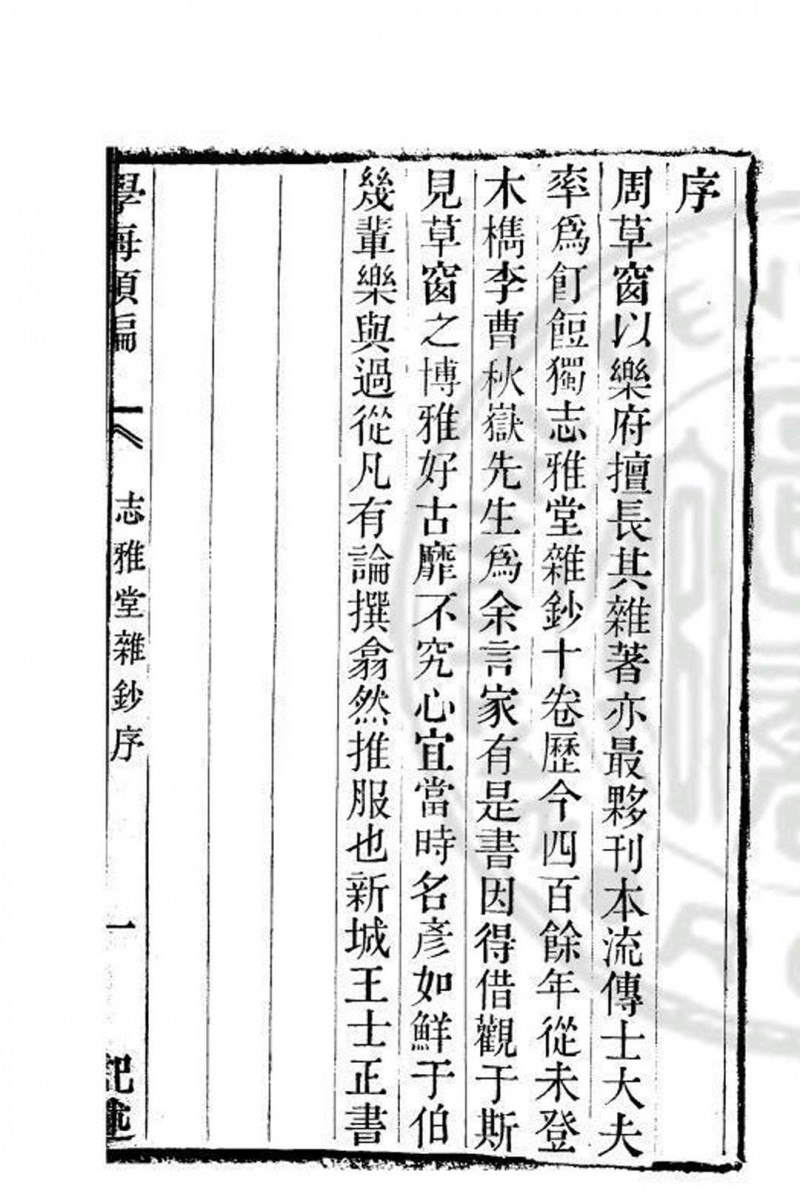 序
周草窗以樂府擅長其雜著亦最夥刊本流傳士大夫
率爲飣餖獨志雅堂雜鈔十卷歷今四百餘年從未登
木檇李曹秋嶽先生爲余言家有是書因得借觀于斯
見草窗之博雅好古靡不究心宜當時名彥如鮮于伯
幾輩樂與過從凡有論撰翕然推服也新城王士正書
學海類編
志雅堂雜鈔序
一
記述